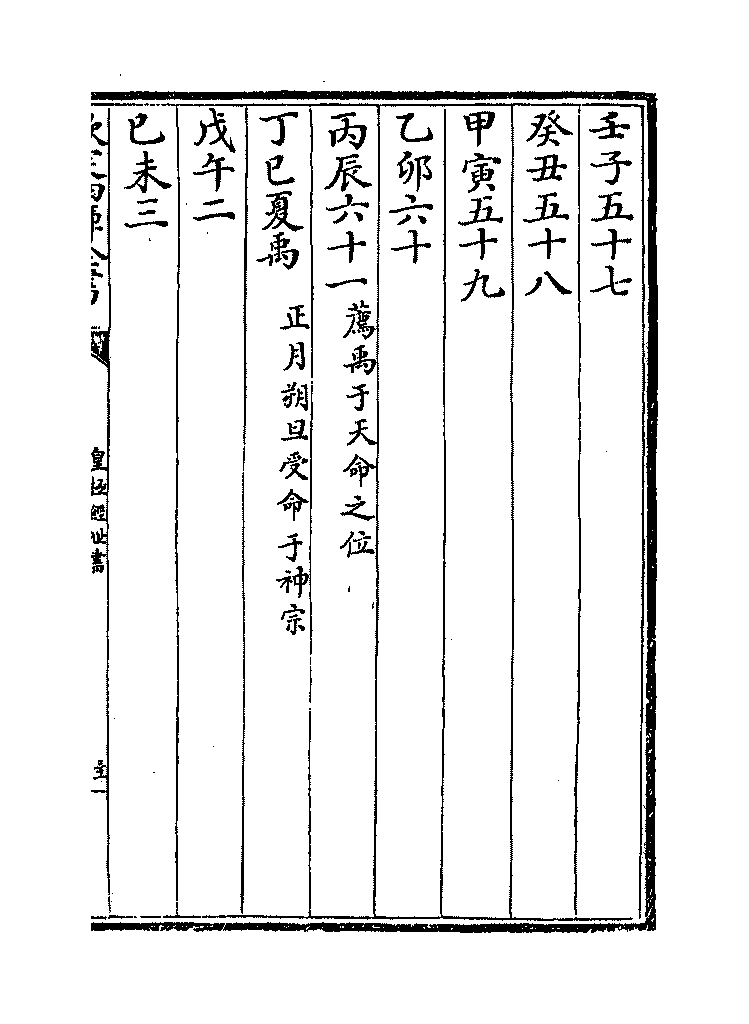 壬子五十七
癸丑五十八
甲寅五十九
乙卯六十
丙辰六十一 薦禹于天命之位
丁巳夏禹 正月朔旦受命于神宗
戊午二
己未三
皇極經世書